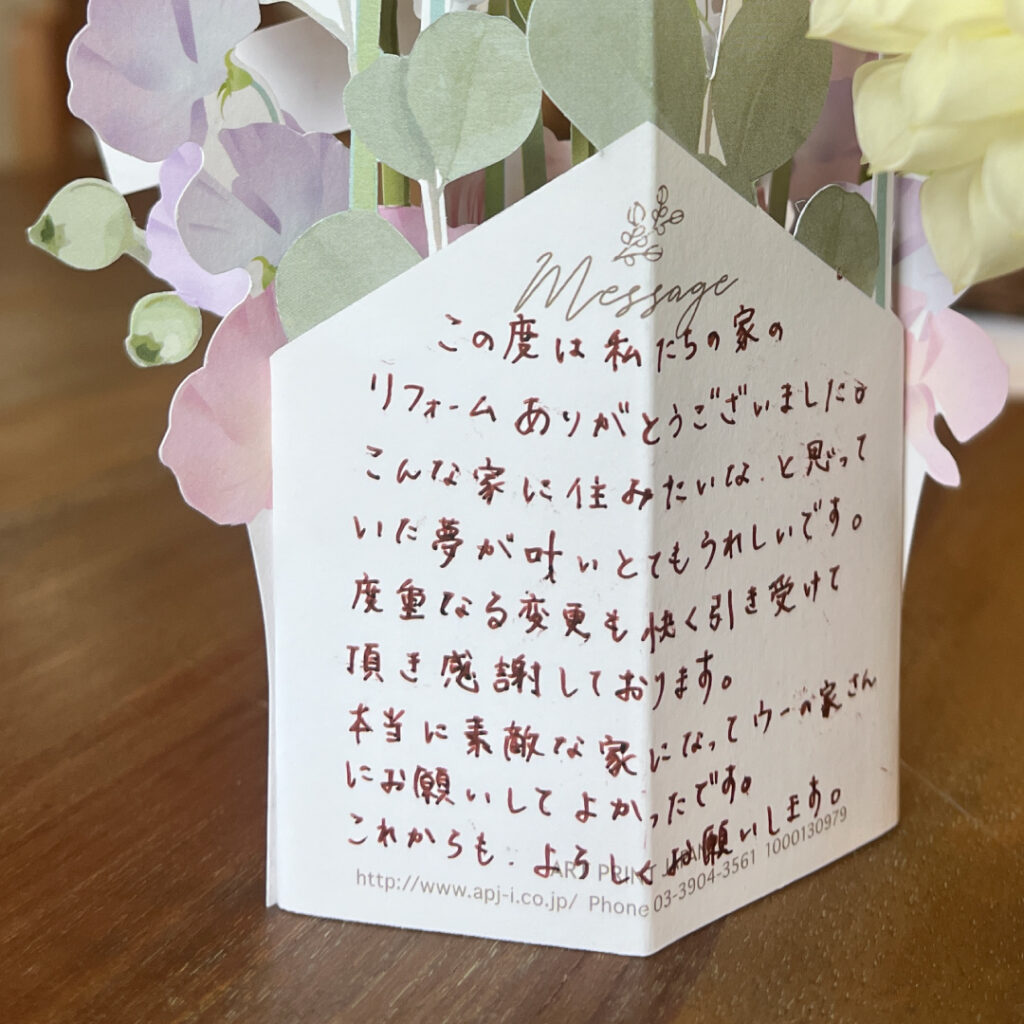 Message
この度は私たちの家の
リフォームありがとうございました。
こんな家に住みたいな、と思って
いた夢が叶いとてもうれしいです。
度重なる変更も快く引き受けて
頂き感謝しております。
本当に素敵な家になってウーの家さん
にお願いしてよかったです。
これからも、よろしくお願いします。
ART PRINT JAPAN 1000130979
http://www.apj-i.co.jp/ Phone 03-3904-3561